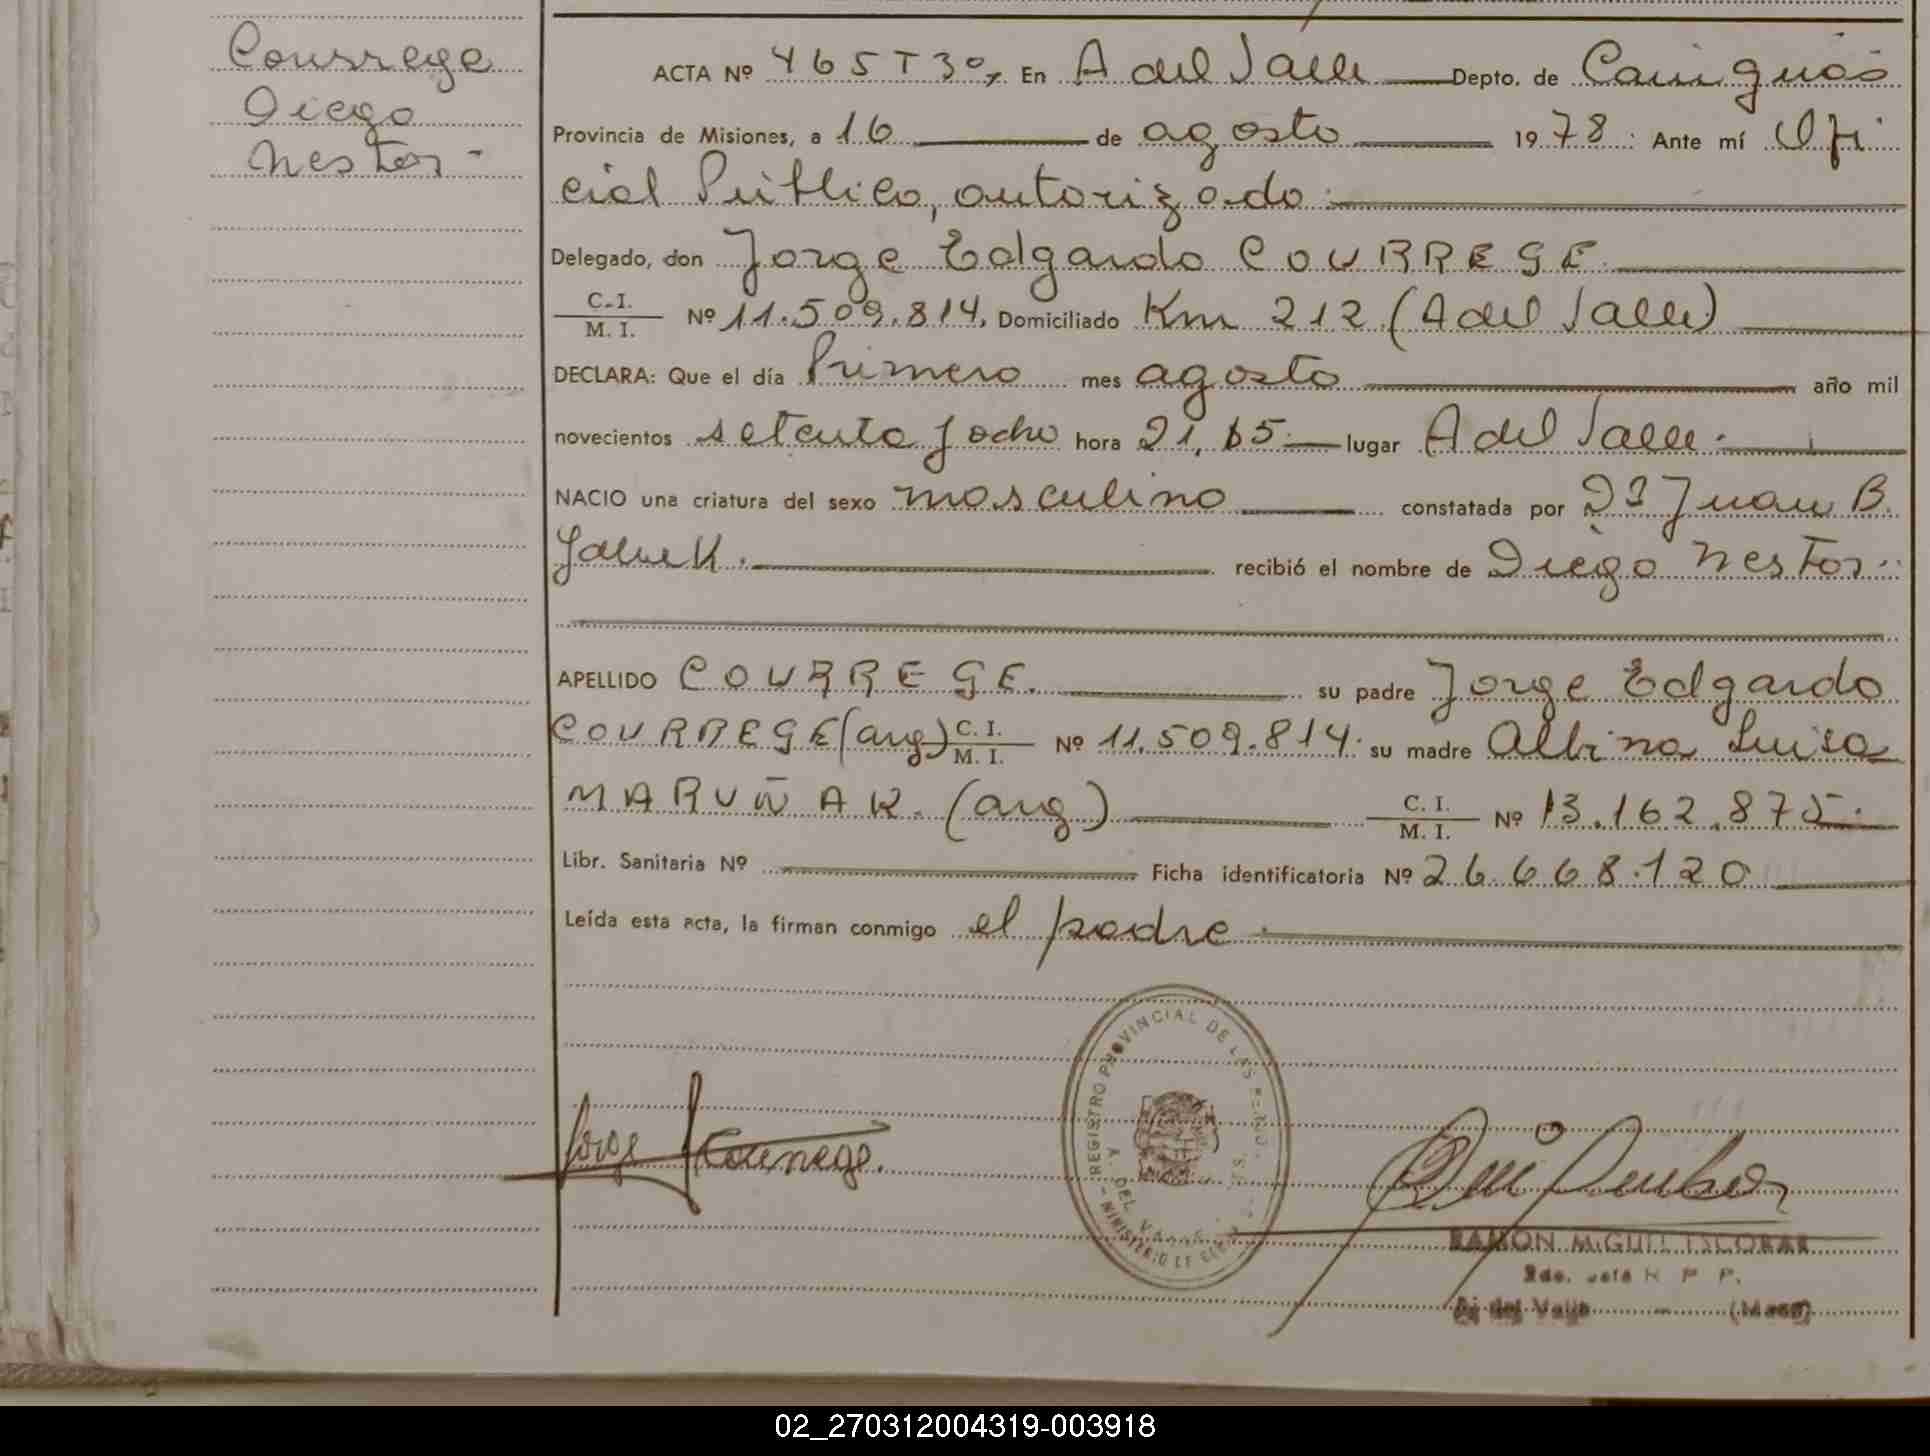 Courrege
Diego
Nestor -
ACTA Nº 465 T 3º, En A del Valle Depto. de Cainguás
Provincia de Misiones, a 16 de agosto 1978 : Ante mí Ofi
cial Público, autorizado
Delegado, don Jorge Edgardo COURREGE
C.I.
M. I. Nº 11.509.814, Domiciliado Km 212 (A del Valle)
DECLARA: Que el día Primero mes agosto año mil
novecientos setenta y ocho hora 21,15 lugar A del Valle.
NACIO una criatura del sexo masculino constatada por Dr Juan B.
recibió el nombre de Diego Nestor
APELLIDO COURREGE. su padre Jorge Edgardo
COURREGE (arg) C. I.
M. I. Nº 11.509.814. su madre Albina Luisa
MARUÑAK. (arg) C. I.
M. I. Nº 13.162.875.
Libr. Sanitaria Nº Ficha identificatoria Nº 26.668.120
Leída esta acta, la firman conmigo el padre.
REGISTRO PROVINCIAL DE LAS
A. DEL VALLE
MINISTERIO DE
Jorge Courrege.
RAMON MIGUEL ESCOBAR
2do. Jefe R P P.
A. del Valle (Mnes)
02_270312004319-003918